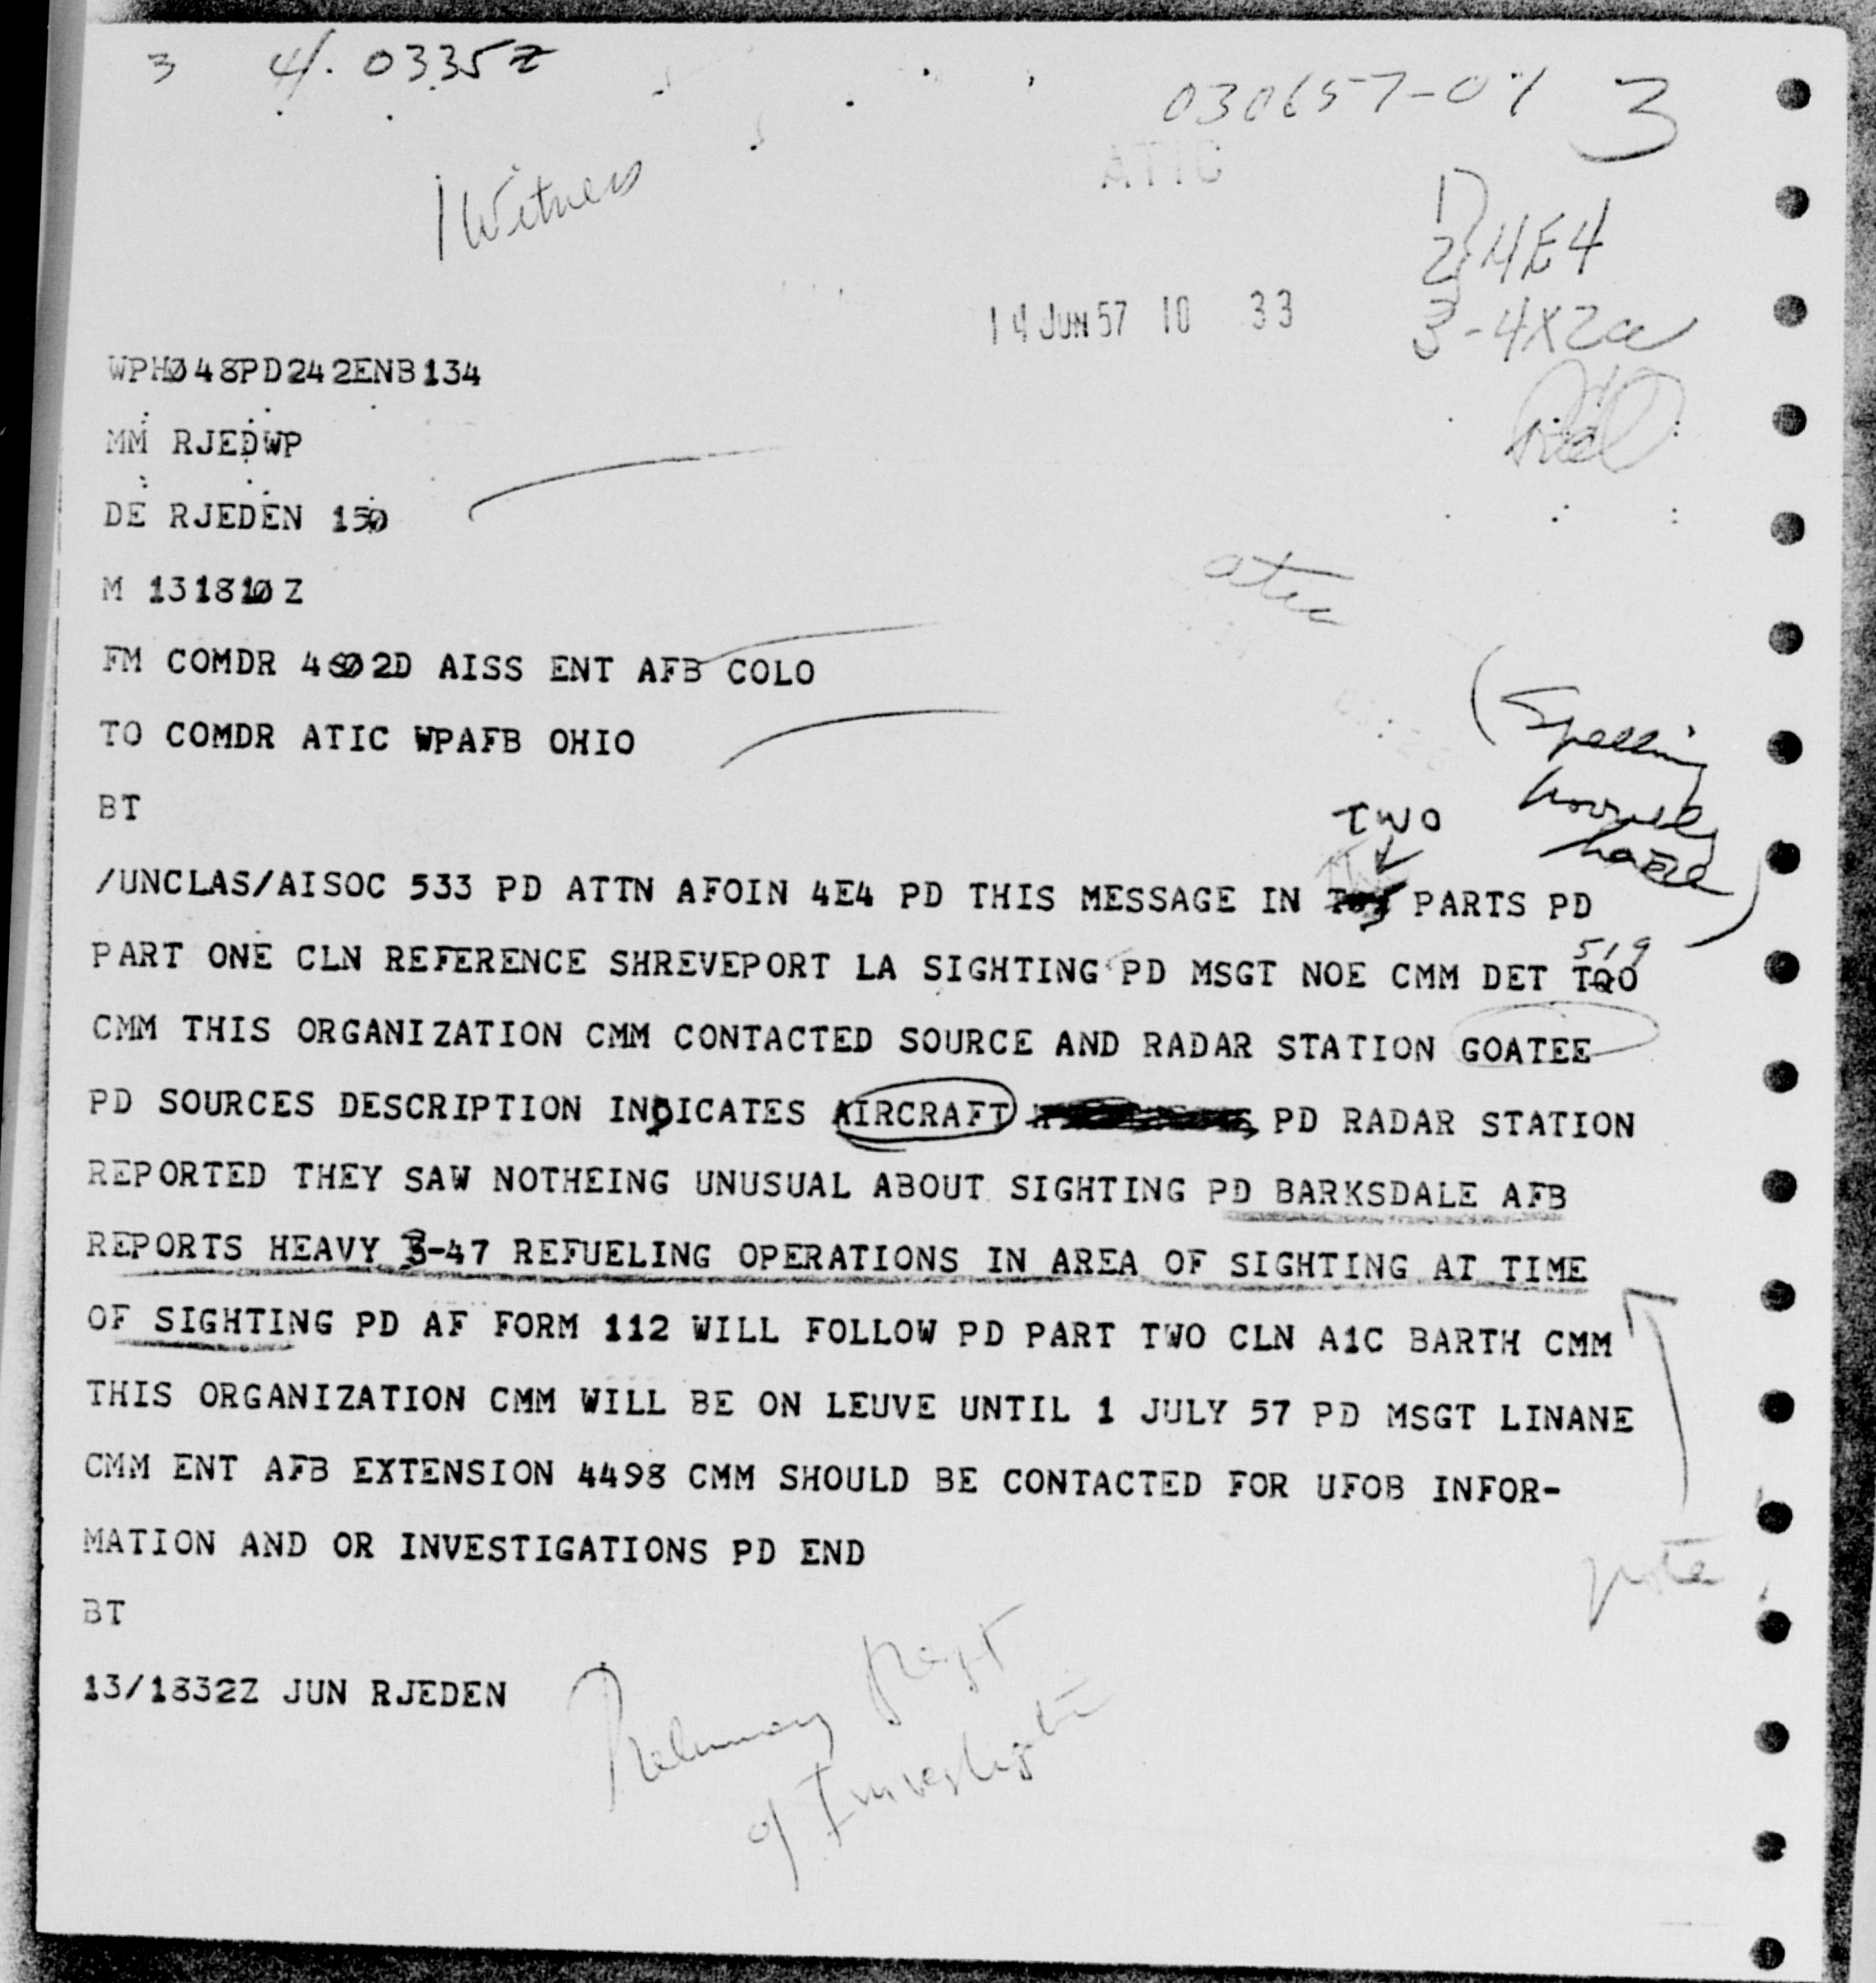 3 4. 0335Z
030657-01 3
1 Witness
ATIC
1
2 } 4E4
3-4X2a
14 JUN 57 10 33
WPH048PD242ENB134
MM RJEDWP
DE RJEDEN 150
M 131810Z
FM COMDR 4602D AISS ENT AFB COLO
TO COMDR ATIC WPAFB OHIO
BT
(Spelling
TWO
/UNCLAS/AISOC 533 PD ATTN AFOIN 4E4 PD THIS MESSAGE IN PARTS PD
519
PART ONE CLN REFERENCE SHREVEPORT LA SIGHTING PD MSGT NOE CMM DET TQO
CMM THIS ORGANIZATION CMM CONTACTED SOURCE AND RADAR STATION GOATEE
PD SOURCES DESCRIPTION INDICATES AIRCRAFT PD RADAR STATION
REPORTED THEY SAW NOTHEING UNUSUAL ABOUT SIGHTING PD BARKSDALE AFB
REPORTS HEAVY B-47 REFUELING OPERATIONS IN AREA OF SIGHTING AT TIME
OF SIGHTING PD AF FORM 112 WILL FOLLOW PD PART TWO CLN A1C BARTH CMM
THIS ORGANIZATION CMM WILL BE ON LEUVE UNTIL 1 JULY 57 PD MSGT LINANE
CMM ENT AFB EXTENSION 4498 CMM SHOULD BE CONTACTED FOR UFOB INFOR-
MATION AND OR INVESTIGATIONS PD END
note
BT
13/1832Z JUN RJEDEN